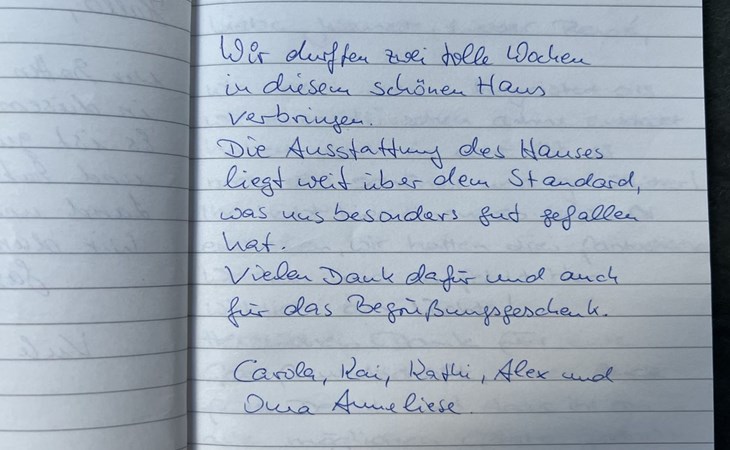 Wir durften zwei tolle Wochen
in diesem schönen Haus
verbringen.
Die Ausstattung des Hauses
liegt weit über dem Standard,
was uns besonders gut gefallen
hat.
Vielen Dank dafür und auch
für das Begrüßungsgeschenk.
Carola, Kai, Kathi, Alex und
Oma Anneliese